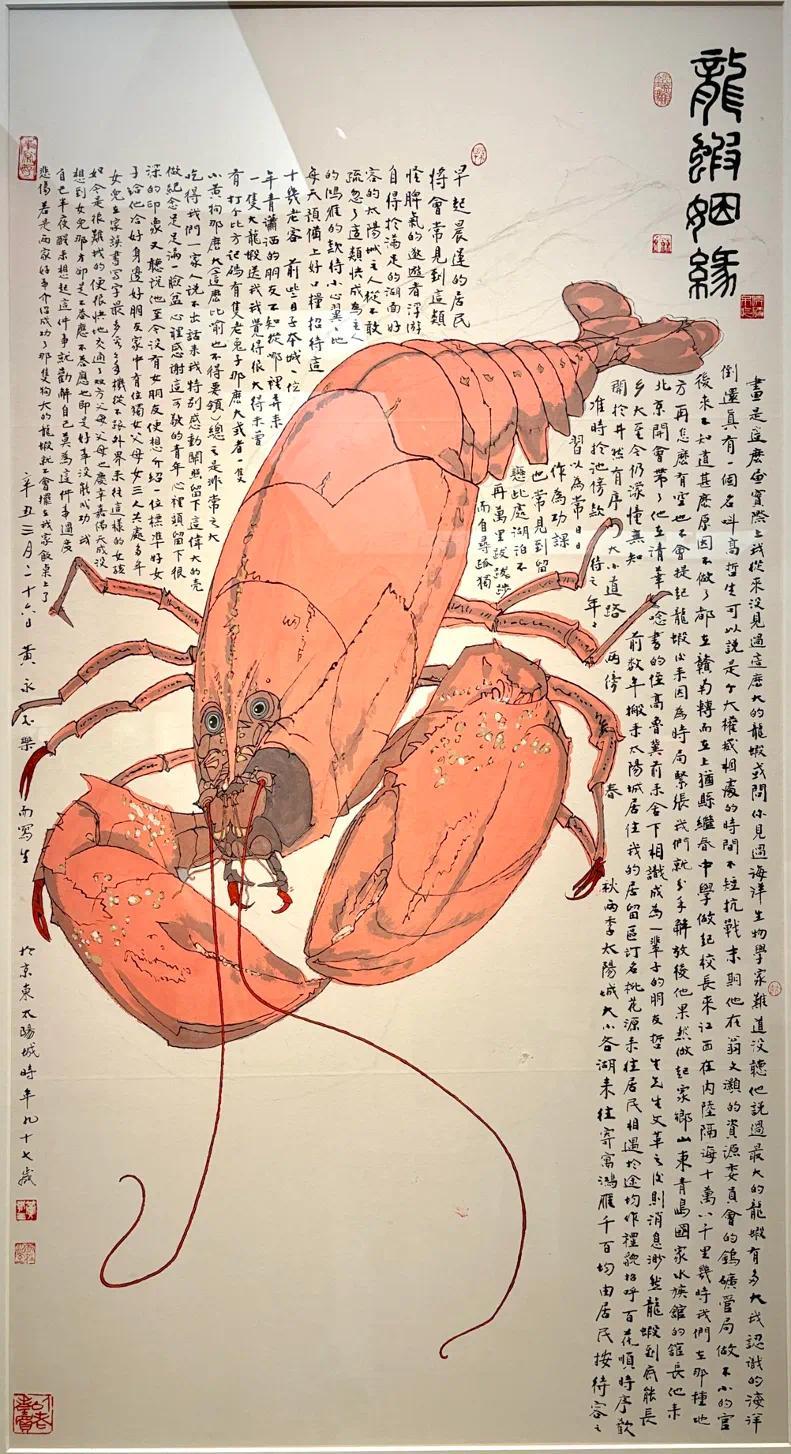 龍蝦姻緣
畫是這麼畫實際上我從來沒見過這麼大的龍蝦我問你見過海洋生物學家難道沒聽他說過最大的龍蝦有多大我認識的海洋
倒還真有一個名叫高哲生可以說是个大權威相處的時間不短抗戰末期他在翁文灝的資源委員會的鎢礦管局做不小的官
後來不知道甚麼原因不做了都在贛南轉而在上猶縣繼春中學做起校長來江西在內陸隔海十萬八千里幾時我們在那種地
方再怎麼有空也不會提起龍蝦來因為時局緊張我們就分手解放後他果然做起家鄉山東青島國家水族館的館長他來
北京開會帶了他在清華唸書的侄高魯冀前來舍下相識成為一輩子的朋友哲生先生文革之後則消息渺然龍蝦到底能長
多大至今仍濛憧無知 前數年搬來太陽城居住我的居留區訂名桃花源來往居民相遇於途均作禮貌招呼百花順時序歡
開於井然有序 大小道路 兩傍 春 秋兩季太陽城大小各湖來往寄寓鴻雁千百均由居民按待客之
準時於池傍款 待之年々
習以為常
作為功課
也常見到留
戀此處湖泊不
再萬里跋涉
而自尋孤獨
早起晨運的居民
將會常見到這類
怪脾氣的遨遊者浮游
自得於滿足的湖面好
客的太陽城主人從不敢
疏忽了這類快成為主人
的鴻雁的款待小心翼々地
每天預備上好口糧招待這
十幾老客 前些日子本城一位
年青瀟洒的朋友不知從哪裡弄來
一隻大龍蝦送我我覺得很大得未曾
有打个比方起碼有隻老兔子那麼大或者一隻
小黃狗那麼大這麼比前也不得要領總之是非常之大
吃得我們一家人說不出話來我特別感動關照留下這偉大的壳
做紀念足足滿一臉盆心裡感謝這可敬的青年心裡頭留下很
深的印象又聽說他至今沒有女朋友便想介紹一位標準好女
子給他恰好身邊好朋友家中有位獨女父母女三人共處多年
女兒在家讀書寫字最多手機從不跟外界來往這樣的女孩
如今是很難找的便很快地交通了双方父母父母也慶幸嘉偶天成沒
想到女兒那方卻是不答應不答應也即是好事沒能成功我
自己半夜醒來想起這件事就勸解自己莫為這件事過度
悲傷若是兩家好事介紹成功了那隻狗大的龍蝦就不會擺在我家飯桌上了
辛丑三月二十六日 黃永玉樂 而寫生 於京東太陽城時年九十七歲